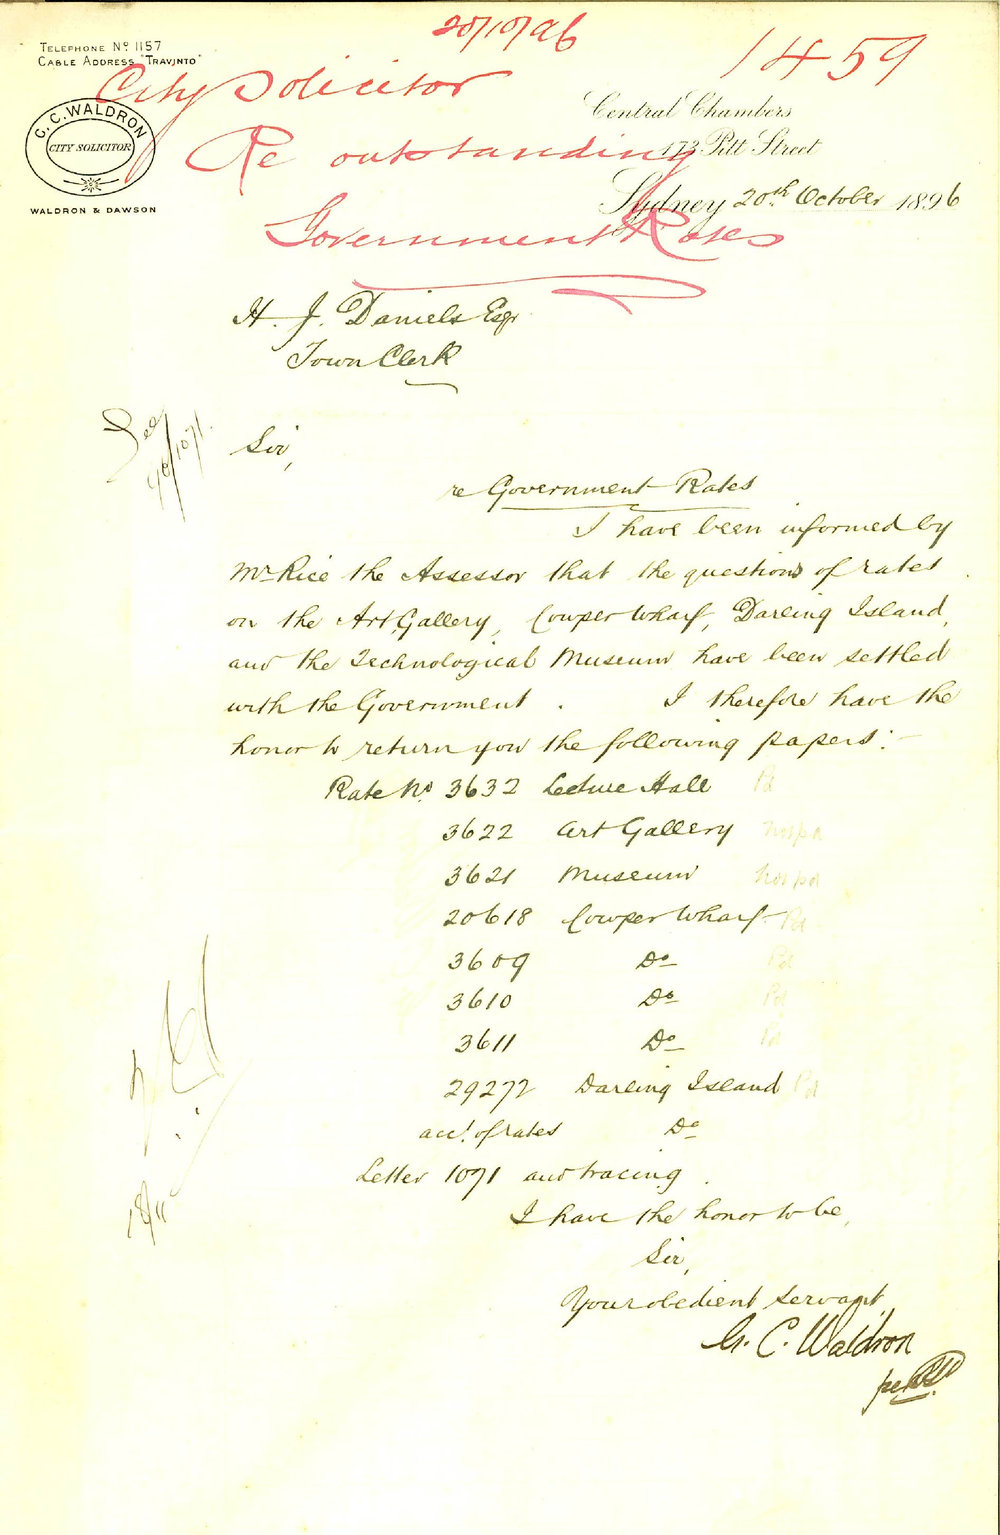 20/10/96
1459
TELEPHONE No 1157
CABLE ADDRESS "TRAVINTO"
City Solicitor
Re outstanding
Government Rates
G. C. WALDRON
CITY SOLICITOR
WALDRON & DAWSON
Central Chambers
173 Pitt Street
Sydney 20th October 1896
H. J. Daniels Esqr
Town Clerk
See
96/1071.
Sir,
re Government Rates
I have been informed by
Mr Rice the Assessor that the questions of rates
on the Art Gallery, Cowper Wharf, Darling Island,
and the Technological Museum have been settled
with the Government. I therefore have the
honor to return you the following papers:-
Rate No. 3632 Lecture Hall Pd
3622 Art Gallery not pd
3621 Museum not pd
20618 Cowper Wharf Pd
3609 Do Pd
3610 Do Pd
3611 Do Pd
29272 Darling Island Pd
acct. of rates Do
Letter 1071 and tracing.
I have the honor to be,
Sir,
Your obedient servant,
G. C. Waldron
per